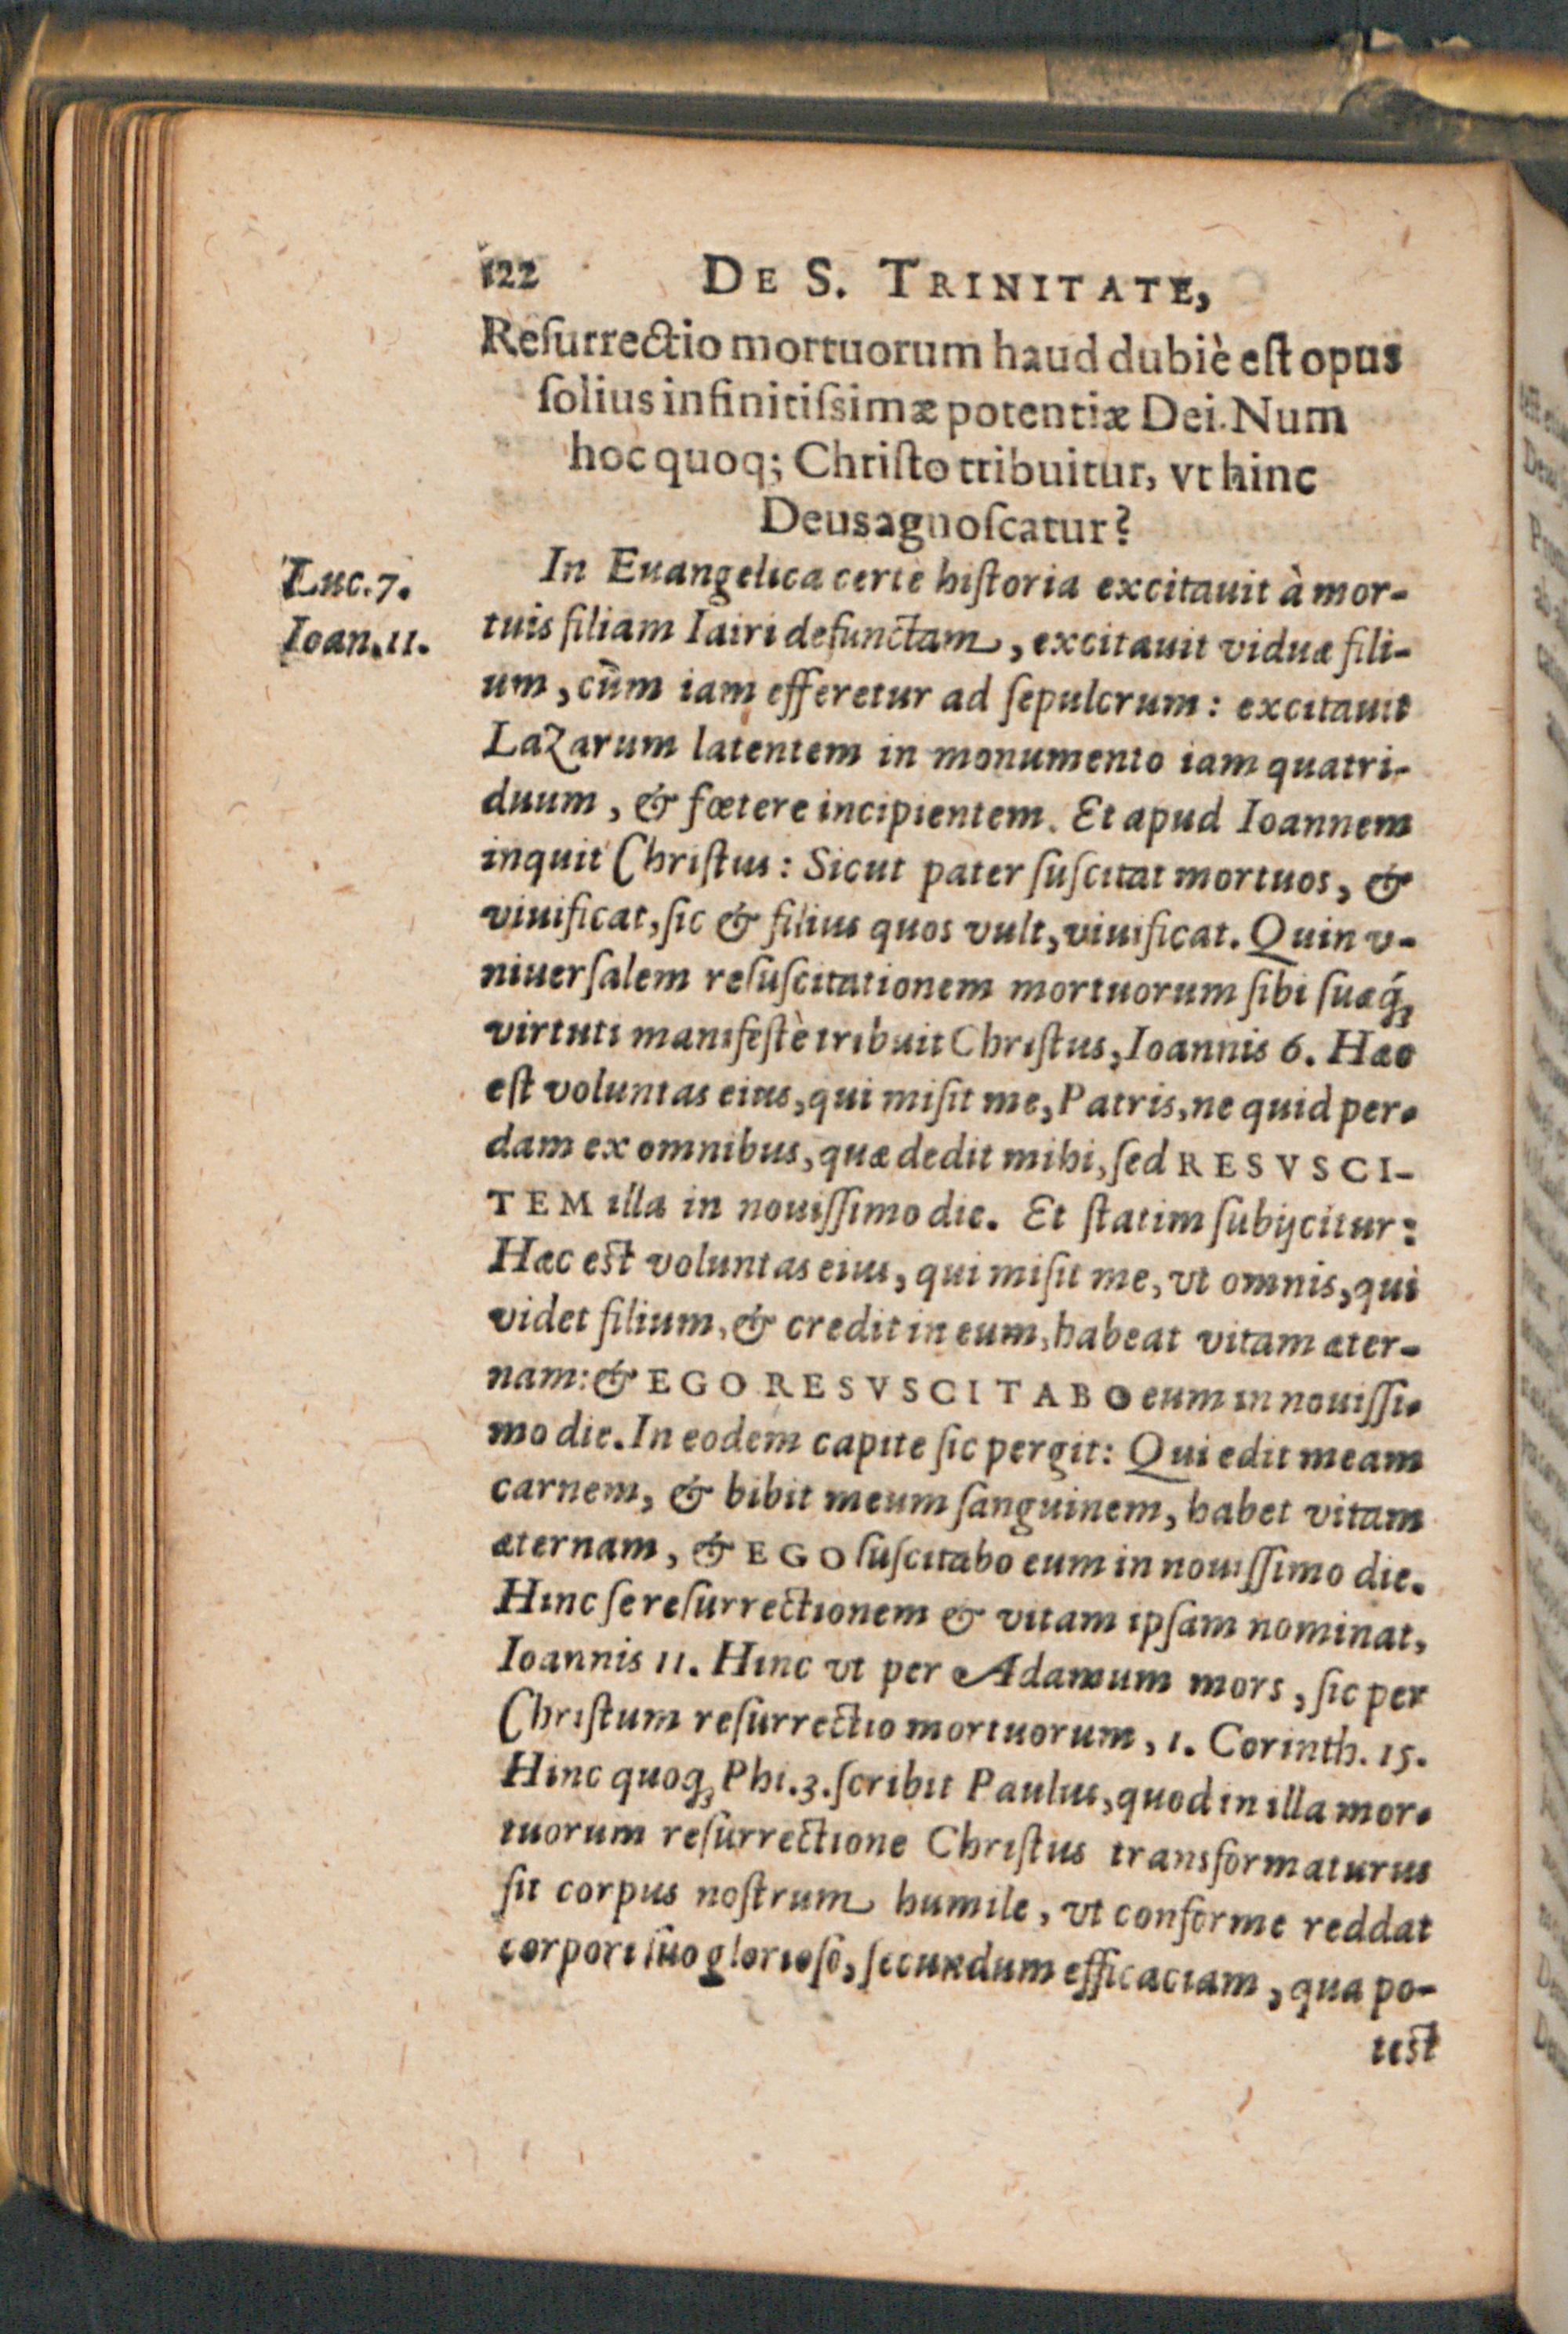 122 DE S. TRINITATE,
Reſurrectio mortuorum haud dubiè eſt opus
ſolius infinitiſsimæ potentiæ Dei. Num
hoc quoq; Chriſto tribuitur, vt hinc
Deus agnoſcatur?
Luc. 7.
Ioan. 11.
In Euangelica certè hiſtoria excitauit à mor-
tuis filiam Iairi defunctam, excitauit viduæ fili-
um, cùm iam efferetur ad ſepulcrum: excitauit
Lazarum latentem in monumento iam quatri-
duum, & fœtere incipientem. Et apud Ioannem
inquit Chriſtus: Sicut pater ſuſcitat mortuos, &
viuificat, ſic & filius quos vult, viuificat. Quin v-
niuerſalem reſuſcitationem mortuorum ſibi ſuæq́;
virtuti manifeſtè tribuit Chriſtus, Ioannis 6. Hæc
eſt voluntas eius, qui miſit me, Patris, ne quid per-
dam ex omnibus, quæ dedit mihi, ſed RESVSCI-
TEM illa in nouiſſimo die. Et ſtatim ſubijcitur:
Hæc eſt voluntas eius, qui miſit me, vt omnis, qui
videt filium, & credit in eum, habeat vitam æter-
nam: & EGO RESVSCITABO eum in nouiſſi-
mo die. In eodem capite ſic pergit: Qui edit meam
carnem, & bibit meum ſanguinem, habet vitam
æternam, & EGO ſuſcitabo eum in nouiſſimo die.
Hinc ſe reſurrectionem & vitam ipſam nominat,
Ioannis 11. Hinc vt per Adamum mors, ſic per
Chriſtum reſurrectio mortuorum, 1. Corinth. 15.
Hinc quoq; Phi. 3. ſcribit Paulus, quod in illa mor-
tuorum reſurrectione Chriſtus transformaturus
ſit corpus noſtrum humile, vt conforme reddat
corpori ſuo glorioſo, ſecundum efficaciam, qua po-
teſt